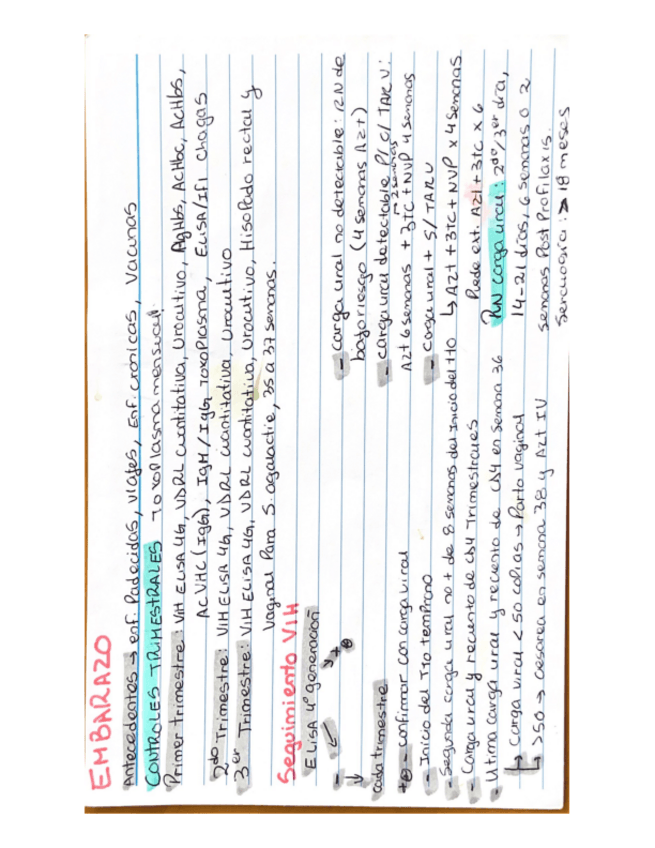 EMBARAZO
Antecedentes → enf. Padecidas, viajes, Enf. crónicas, Vacunas
CONTROLES TRIMESTRALES Toxoplasma mensual.
Primer trimestre: VIH ELISA 4G, VDRL cuantitativa, Urocultivo, AgHbs, AcHbc, AcHbs,
Ac VHC (IgG), IgM/IgG Toxoplasma, ELISA/IFI Chagas
2do Trimestre: VIH ELISA 4G, VDRL cuantitativa, Urocultivo
3er Trimestre: VIH ELISA 4G, VDRL cuantitativa, Urocultivo, Hisopado rectal y
vaginal Para S. agalactie, 35 a 37 semanas.
Seguimiento VIH
ELISA 4° generación
- ↓ → +
cada trimestre
+ - confirmar con carga viral
- Inicio del TTO temprano
- Segunda carga viral no + de 8 semanas del inicio del TTO
- Carga viral y recuento de CD4 Trimestrales
- Ultima carga viral y recuento de CD4 en Semana 36
↳ Carga viral < 50 copias → Parto vaginal
↳ >50 → cesarea en semana 38 y AZT IV
- carga viral no detectable: RN de
bajo riesgo (4 semanas AZT)
- carga viral detectable P/ C/ TARV:
AZT 6 semanas + 3TC + NVP 4 semanas
→ 2 semanas
- Carga viral + S/ TARV
↳ AZT + 3TC + NVP x 4 semanas
Puede ext. AZT + 3TC x 6
RN carga viral: 2do/3er día,
14-21 días, 6 semanas o 2
semanas Post Profilaxis.
Serología: > 18 meses